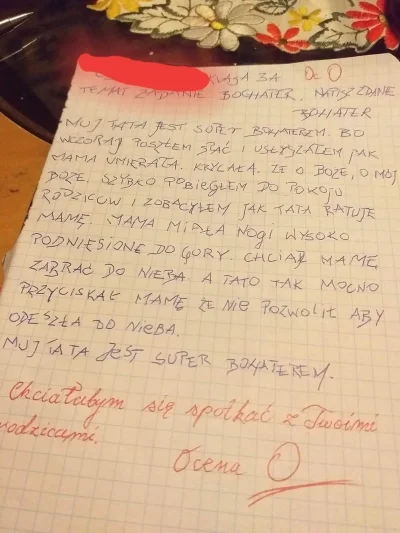 KLASA 3A
TEMAT ZADANIE BOCHATER. NAPISZ ZDANE
BOHATER
MUJ TATA JEST SUPER BOHATEREM. BO
WCZORAJ POSZŁEM SPAĆ I USŁYSZAŁEM JAK
MAMA UMIERAŁA. KRYCZAŁA, ŻE O BOŻE, O MÓJ
BOŻE, SZYBKO POBIEGŁEM DO POKOJU
RODZICUW I ZOBACYŁEM JAK TATA RATUJE
MAMĘ. MAMA MIAŁA NOGI WYSOKO
PODNIESIONE DO GÓRY. CHCIAŁ MAMĘ
ZABRAĆ DO NIEBA. A TATO TAK MOCNO
PRZYCISKAŁ MAMĘ ŻE NIE POZWOLIŁ ABY
ODESZŁA DO NIEBA.
MUJ TATA JEST SUPER BOHATEREM.
Chciałabym się spotkać z Twoimi
rodzicami.
Ocena O